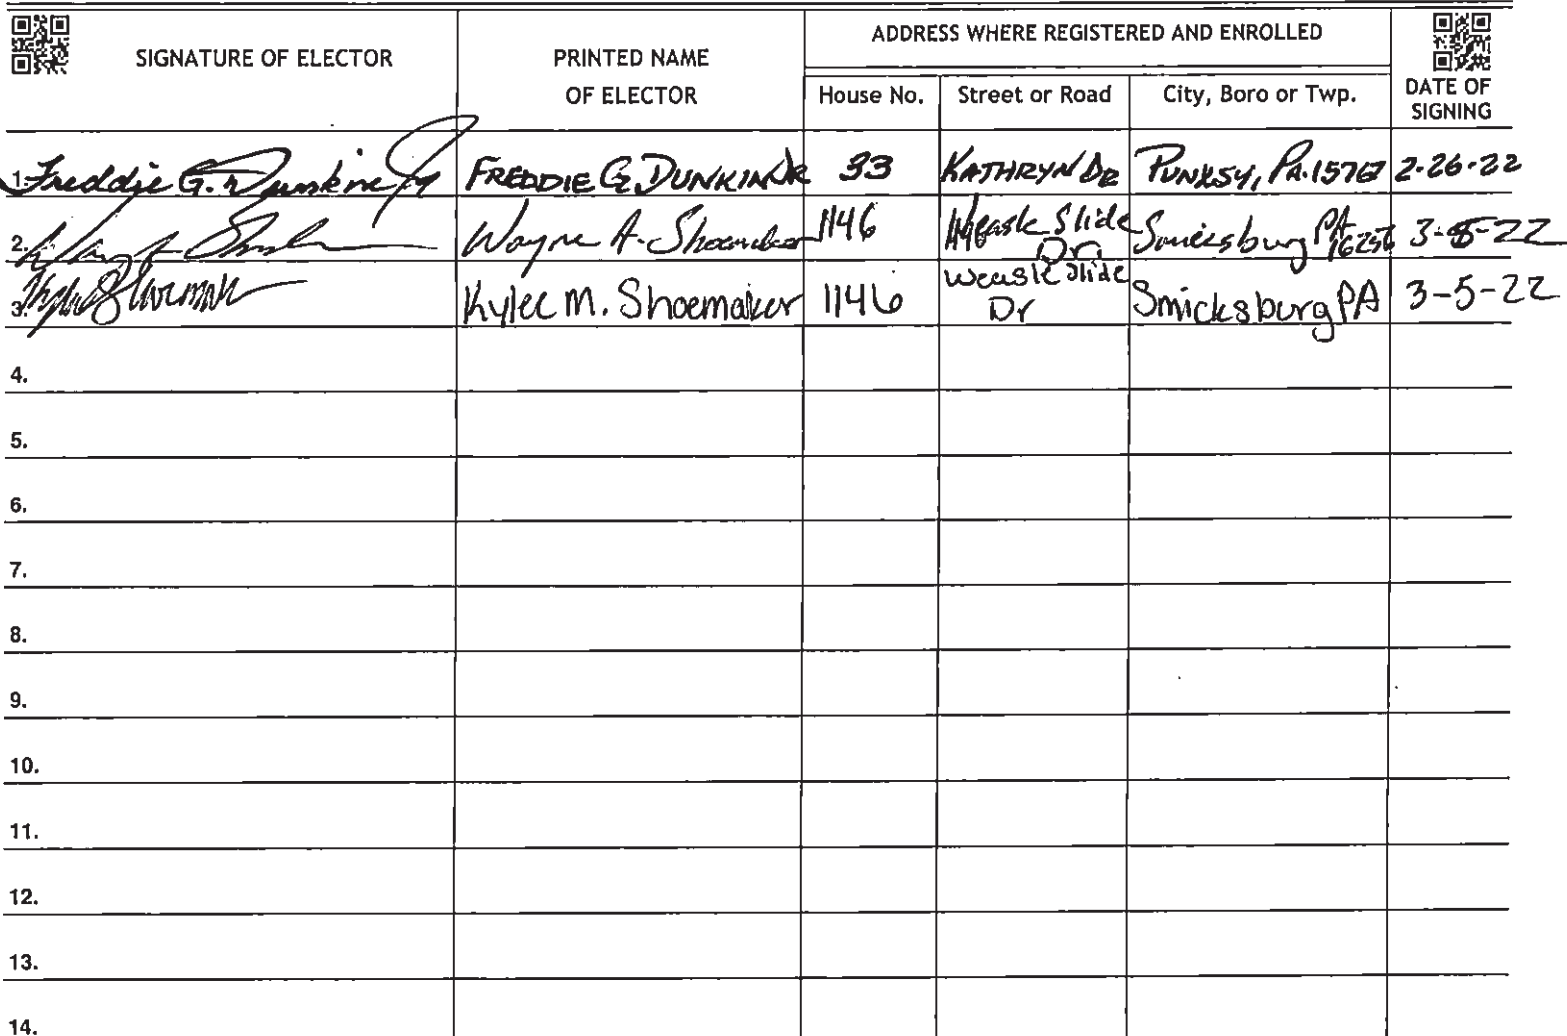 SIGNATURE OF ELECTOR
PRINTED NAME
OF ELECTOR
ADDRESS WHERE REGISTERED AND ENROLLED
House No.
Street or Road
City, Boro or Twp.
DATE OF
SIGNING
1. Freddie G. Dunkin Jr FREDDIE G. DUNKIN JR 33 KATHRYN DR PUNXSY, PA. 15767 2-26-22
2. Wayne A. Shoemaker 1146 Weasle Slide Dr. Smicksburg PA 16256 3-5-22
3. Kylee M. Shoemaker 1146 Weasle Slide Dr Smicksburg PA 3-5-22
4.
5.
6.
7.
8.
9.
10.
11.
12.
13.
14.